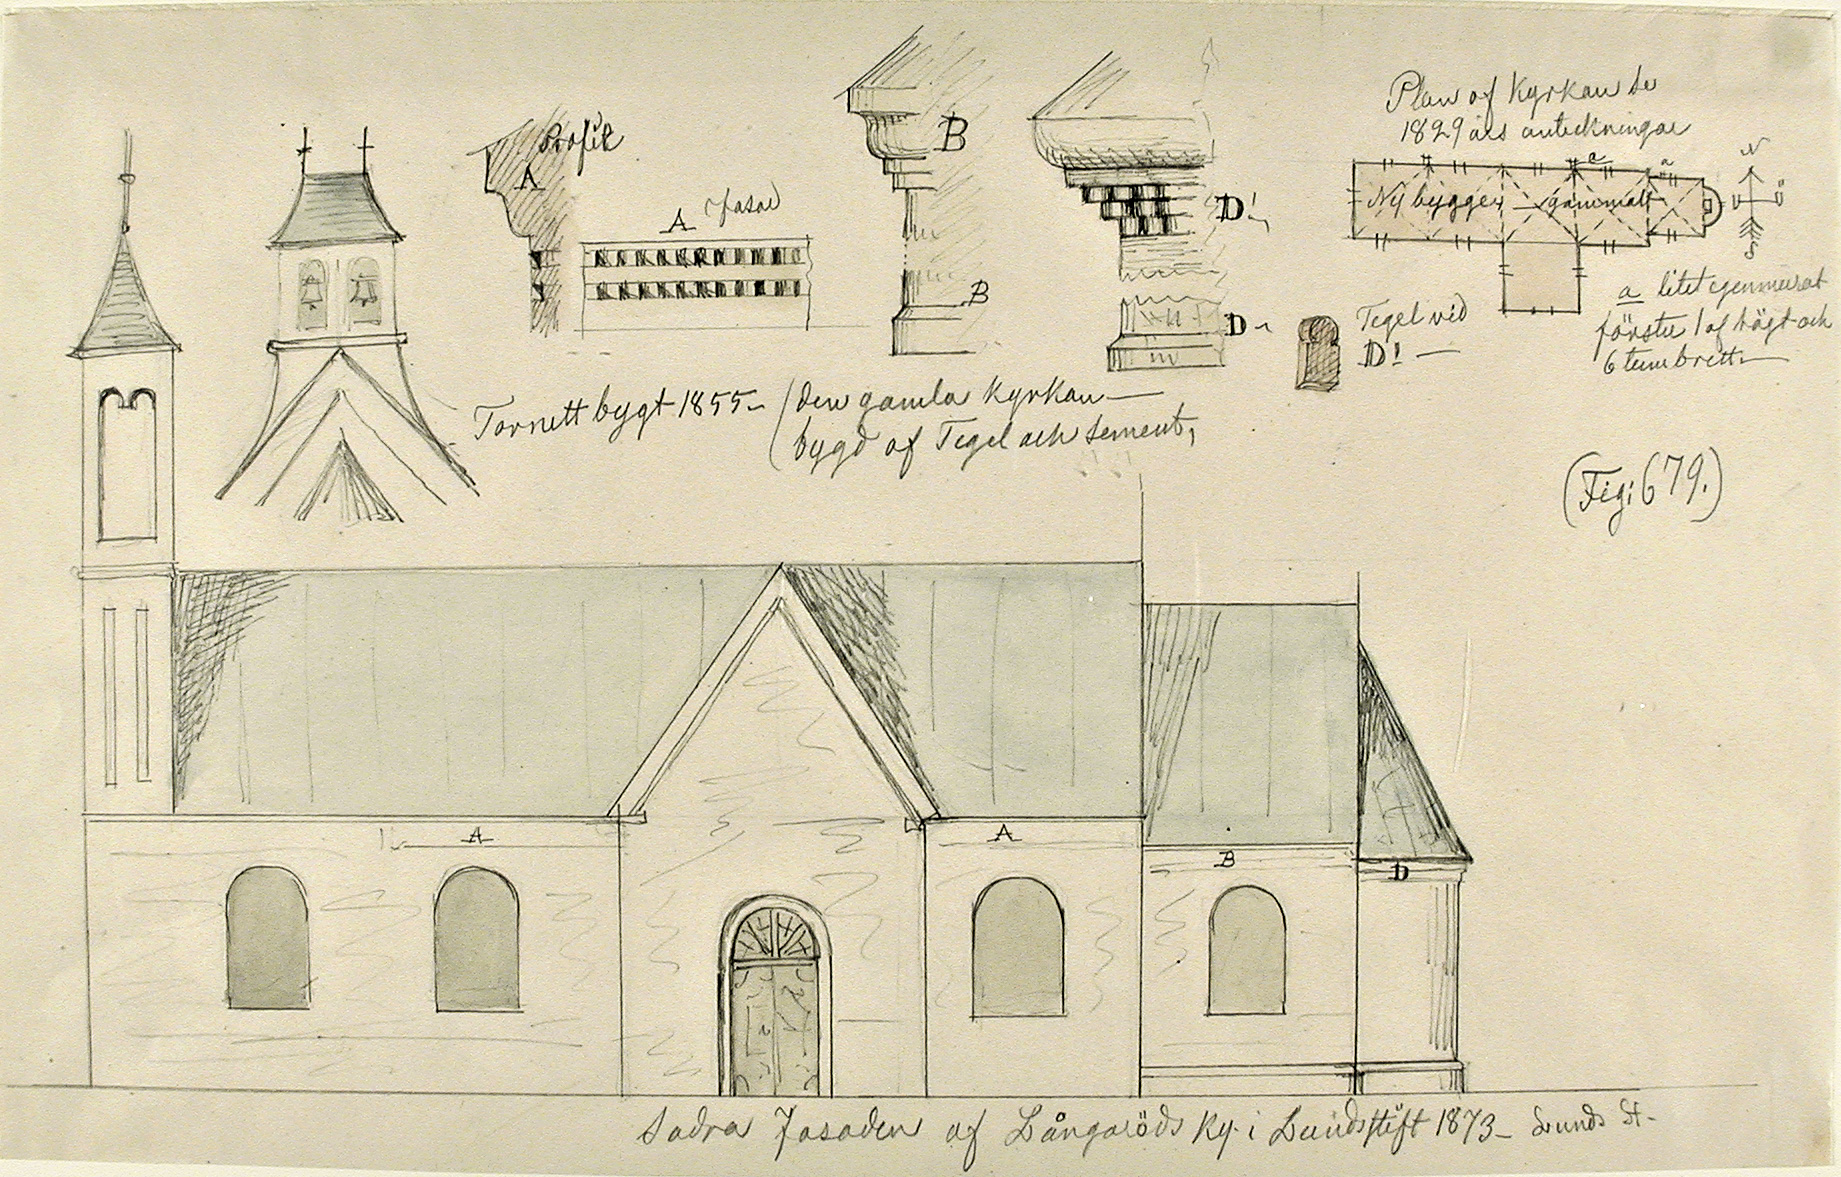 Profil
A
A Fasad
B
B
D!
D
Plan af Kyrkan se
1829 års anteckningar
a
a
Ny bygge
gammalt
N
V
Ö
S
a litet igenmurat
fönster 1 af högt och
6 tum brett
Tegel vid
D!
Tornett bygt 1855 (den gamla Kyrkan
bygd af Tegel och sement,
(Fig: 679.)
A
A
B
D
Södra Fasaden af Långaröds Ky. i Lundsstift 1873 Lunds St